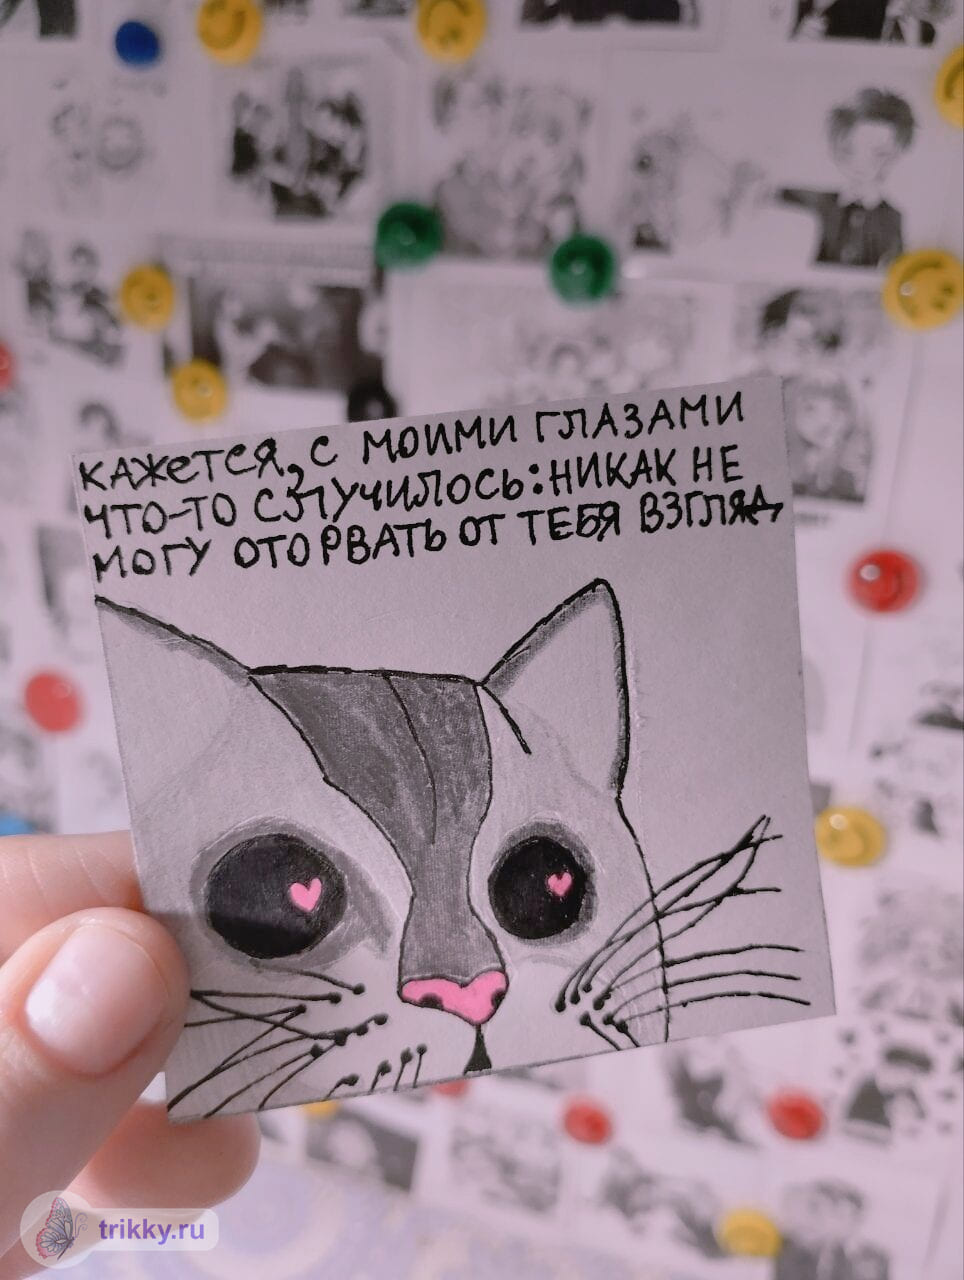 КАЖЕТСЯ, С МОИМИ ГЛАЗАМИ
ЧТО-ТО СЛУЧИЛОСЬ: НИКАК НЕ
МОГУ ОТОРВАТЬ ОТ ТЕБЯ ВЗГЛЯД
trikky.ru